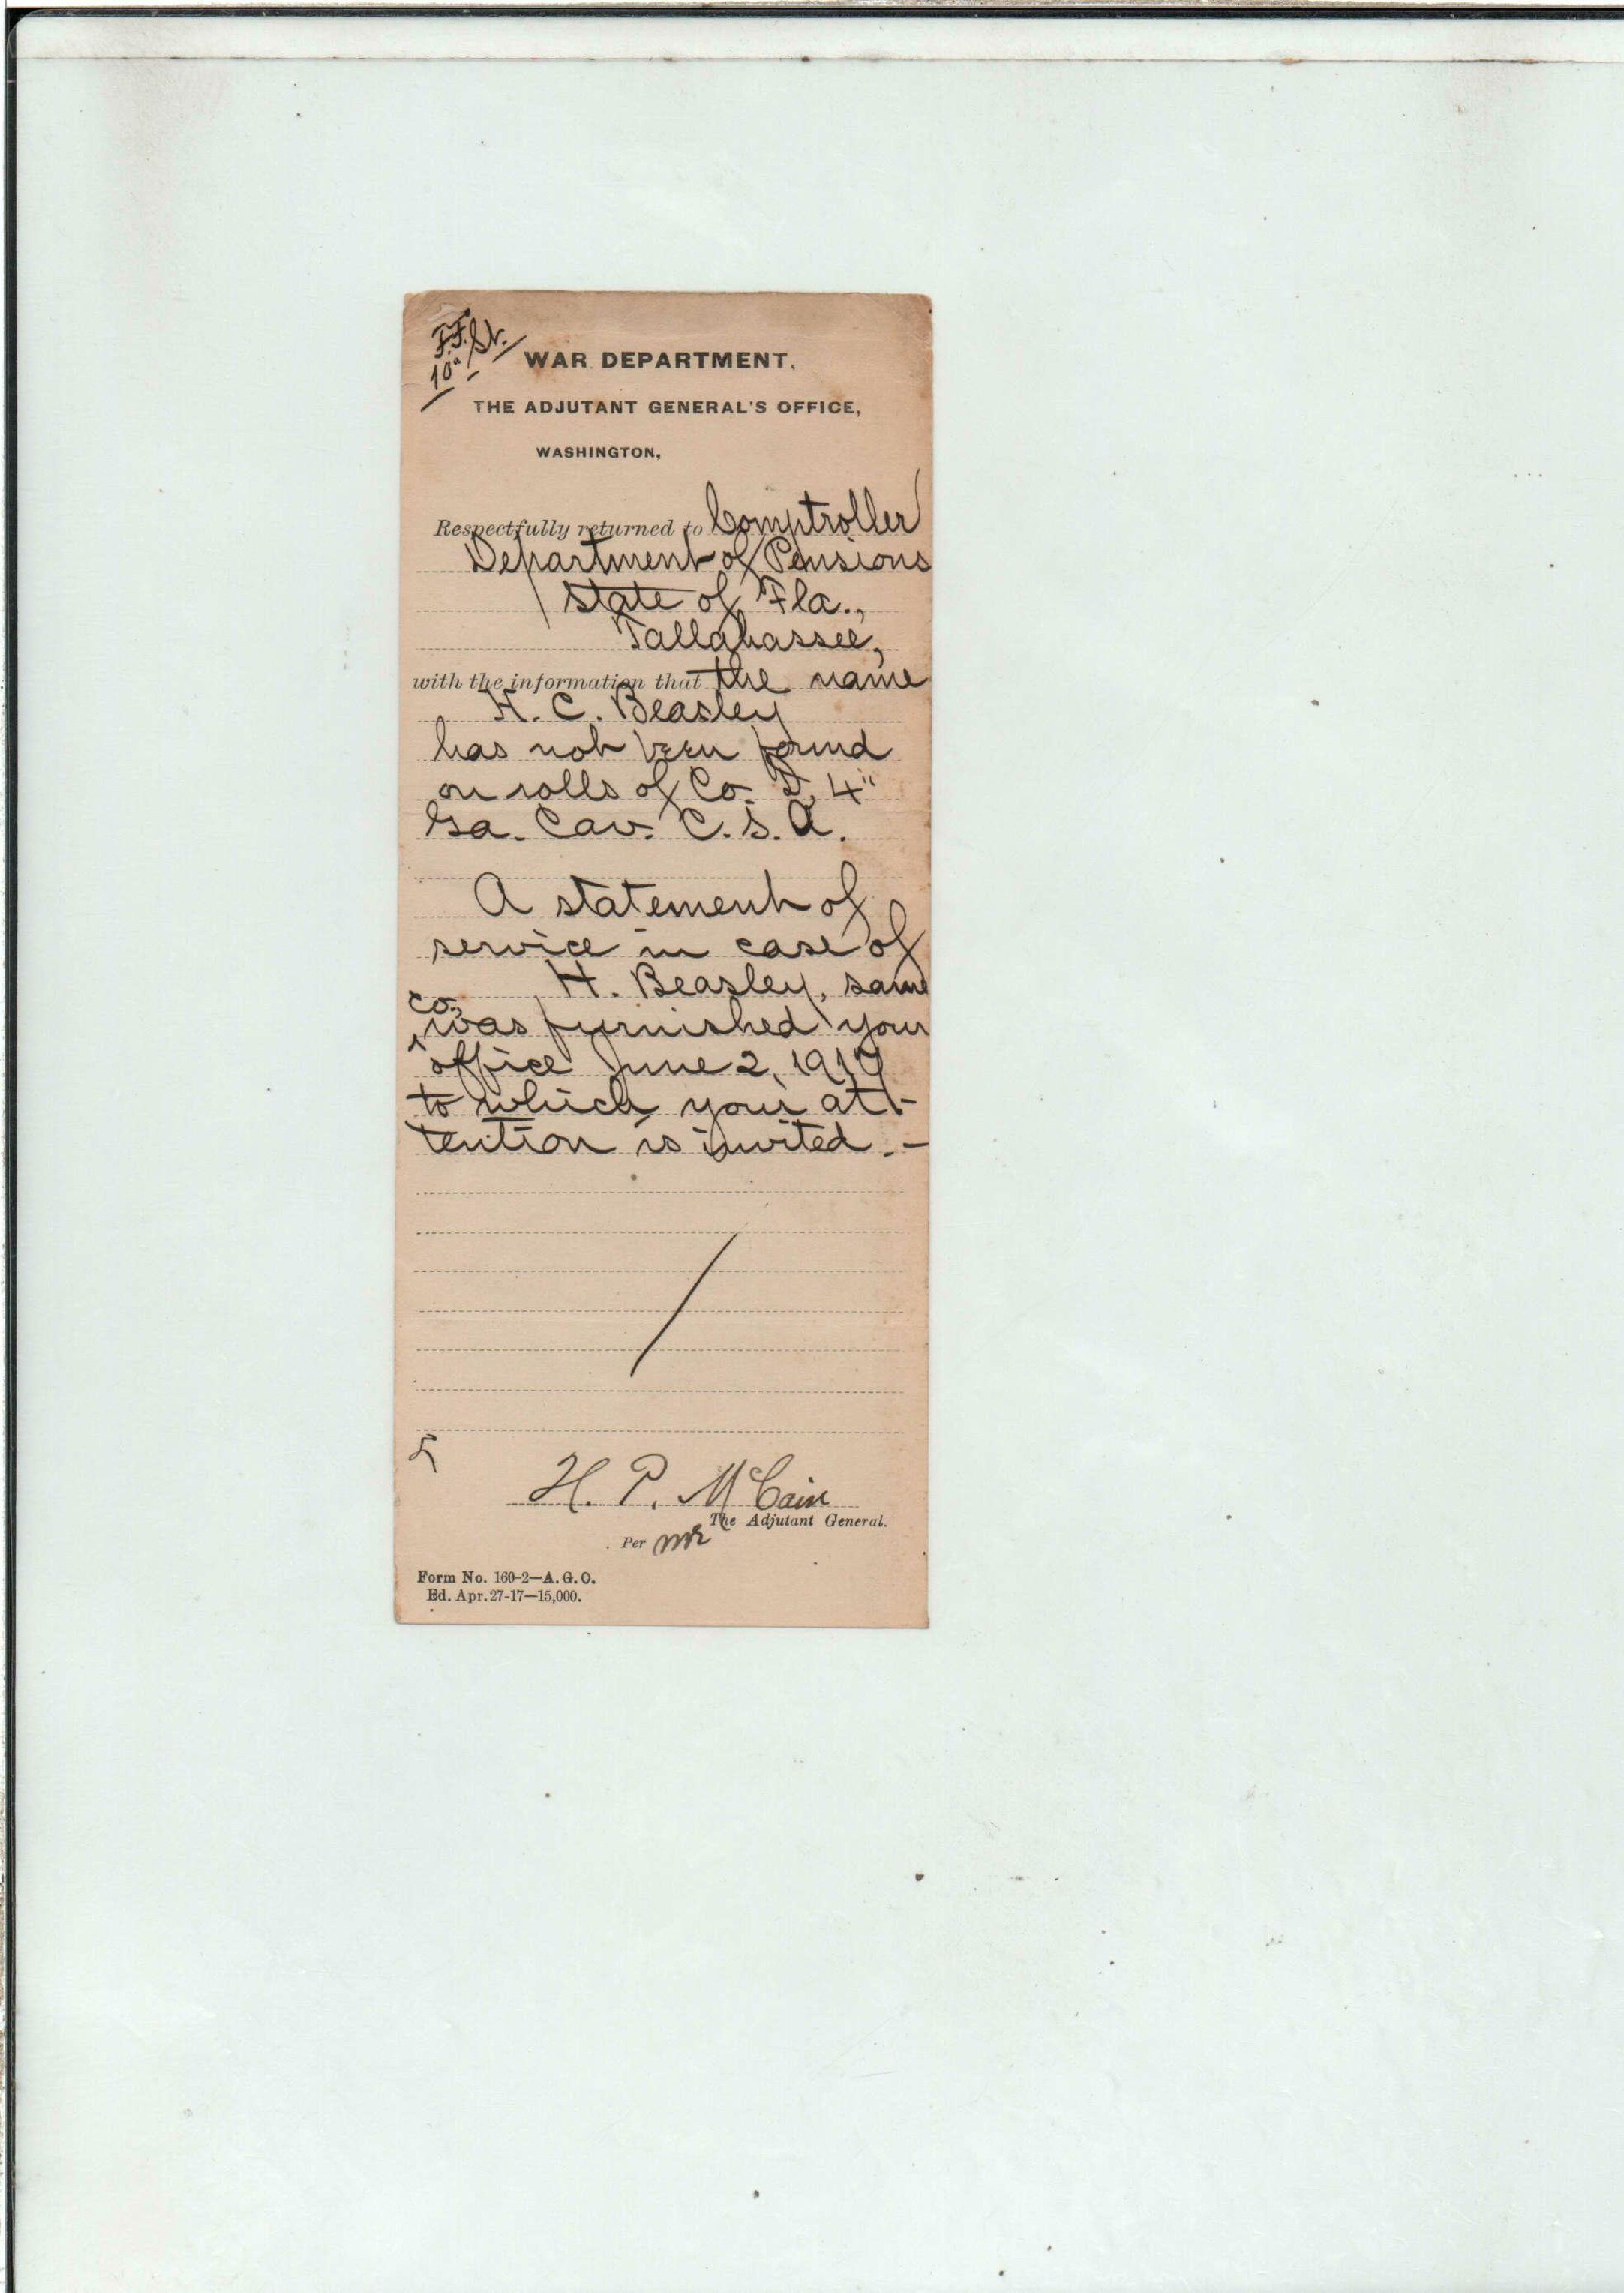 F.F. St.
10"
WAR DEPARTMENT,
THE ADJUTANT GENERAL'S OFFICE,
WASHINGTON,
Respectfully returned to Comptroller
Department of Pensions
State of Fla.,
Tallahassee,
with the information that the name
H. C. Beasley
has not been found
on rolls of Co. D, 4"
Ga. Cav. C. S. A.
A statement of
service in case of
H. Beasley, same
co.,
was furnished your
office June 2, 1917
to which your at-
tention is invited. -
H. P. McCain
The Adjutant General.
Per
Form No. 160-2—A. G. O.
Ed. Apr. 27-17—15,000.